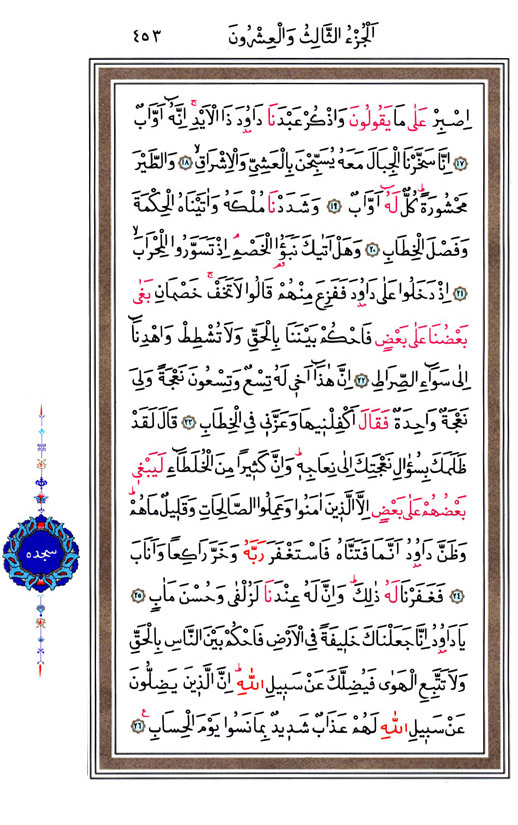 اَلْجُزْءُ الثَّالِثُ وَالْعِشْرُونَ ٤٥٣
اِصْبِرْ عَلٰى مَا يَقُولُونَ وَاذْكُرْ عَبْدَنَا دَاوُ۫دَ ذَا الْاَيْدِۚ اِنَّهُٓ اَوَّابٌ
﴿١٧﴾ اِنَّا سَخَّرْنَا الْجِبَالَ مَعَهُ يُسَبِّحْنَ بِالْعَشِيِّ وَالْاِشْرَاقِۙ ﴿١٨﴾ وَالطَّيْرَ
مَحْشُورَةًۜ كُلٌّ لَهُٓ اَوَّابٌ ﴿١٩﴾ وَشَدَدْنَا مُلْكَهُ وَاٰتَيْنَاهُ الْحِكْمَةَ
وَفَصْلَ الْخِطَابِ ﴿٢٠﴾ وَهَلْ اَتٰيكَ نَبَؤُا الْخَصْمِۢ اِذْ تَسَوَّرُوا الْمِحْرَابَۙ
﴿٢١﴾ اِذْ دَخَلُوا عَلٰى دَاوُ۫دَ فَفَزِعَ مِنْهُمْ قَالُوا لَا تَخَفْۚ خَصْمَانِ بَغٰى
بَعْضُنَا عَلٰى بَعْضٍ فَاحْكُمْ بَيْنَنَا بِالْحَقِّ وَلَا تُشْطِطْ وَاهْدِنَٓا
اِلٰى سَوَٓاءِ الصِّرَاطِ ﴿٢٢﴾ اِنَّ هٰذَٓا اَخ۪ي لَهُ تِسْعٌ وَتِسْعُونَ نَعْجَةً وَلِيَ
نَعْجَةٌ وَاحِدَةٌ فَقَالَ اَكْفِلْن۪يهَا وَعَزَّن۪ي فِي الْخِطَابِ ﴿٢٣﴾ قَالَ لَقَدْ
ظَلَمَكَ بِسُؤَالِ نَعْجَتِكَ اِلٰى نِعَاجِه۪ۜ وَاِنَّ كَث۪يرًا مِنَ الْخُلَطَٓاءِ لَيَبْغ۪ي
بَعْضُهُمْ عَلٰى بَعْضٍ اِلَّا الَّذ۪ينَ اٰمَنُوا وَعَمِلُوا الصَّالِحَاتِ وَقَل۪يلٌ مَا هُمْۜ
وَظَنَّ دَاوُ۫دُ اَنَّمَا فَتَنَّاهُ فَاسْتَغْفَرَ رَبَّهُ وَخَرَّ رَاكِعًا وَاَنَابَ
﴿٢٤﴾ فَغَفَرْنَا لَهُ ذٰلِكَۜ وَاِنَّ لَهُ عِنْدَنَا لَزُلْفٰى وَحُسْنَ مَاٰبٍ ﴿٢٥﴾
يَا دَاوُ۫دُ اِنَّا جَعَلْنَاكَ خَل۪يفَةً فِي الْاَرْضِ فَاحْكُمْ بَيْنَ النَّاسِ بِالْحَقِّ
وَلَا تَتَّبِعِ الْهَوٰى فَيُضِلَّكَ عَنْ سَب۪يلِ اللّٰهِۜ اِنَّ الَّذ۪ينَ يَضِلُّونَ
عَنْ سَب۪يلِ اللّٰهِ لَهُمْ عَذَابٌ شَد۪يدٌ بِمَا نَسُوا يَوْمَ الْحِسَابِ۟ ﴿٢٦﴾
سجده